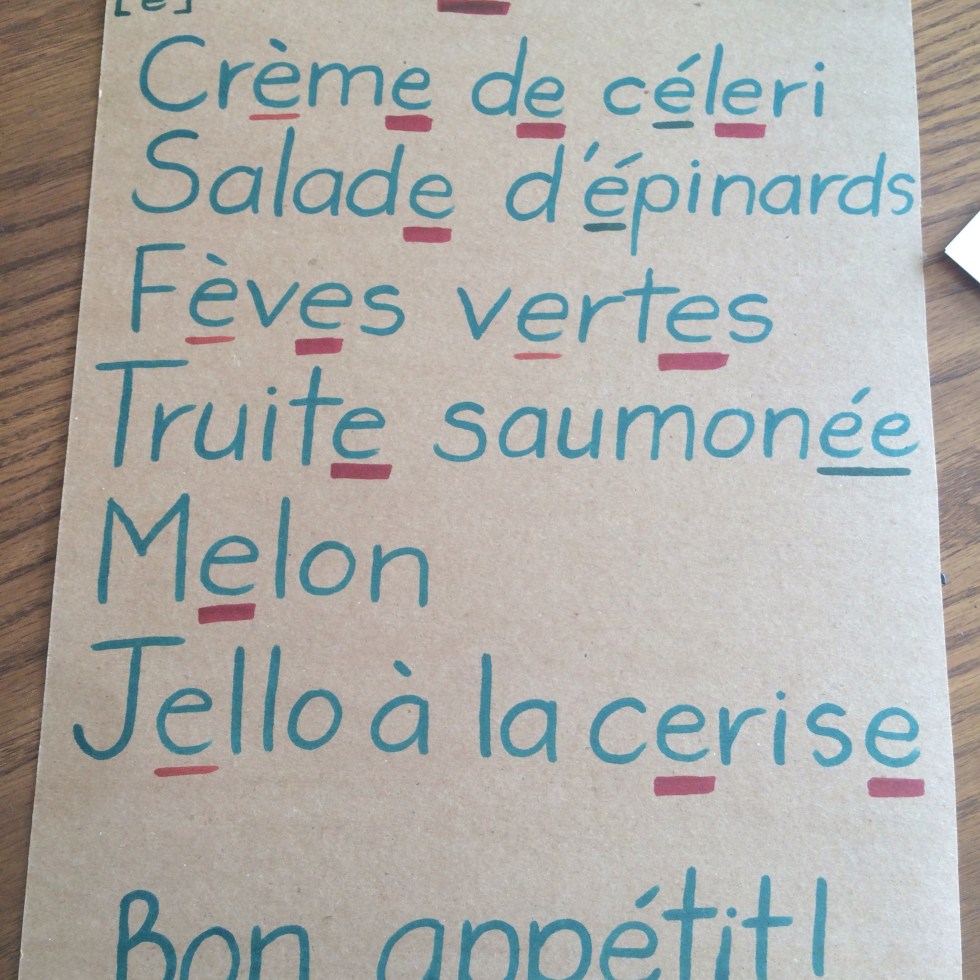 [e]
Crème de céleri
Salade d'épinards
Fèves vertes
Truite saumonée
Melon
Jello à la cerise
Bon appétit!